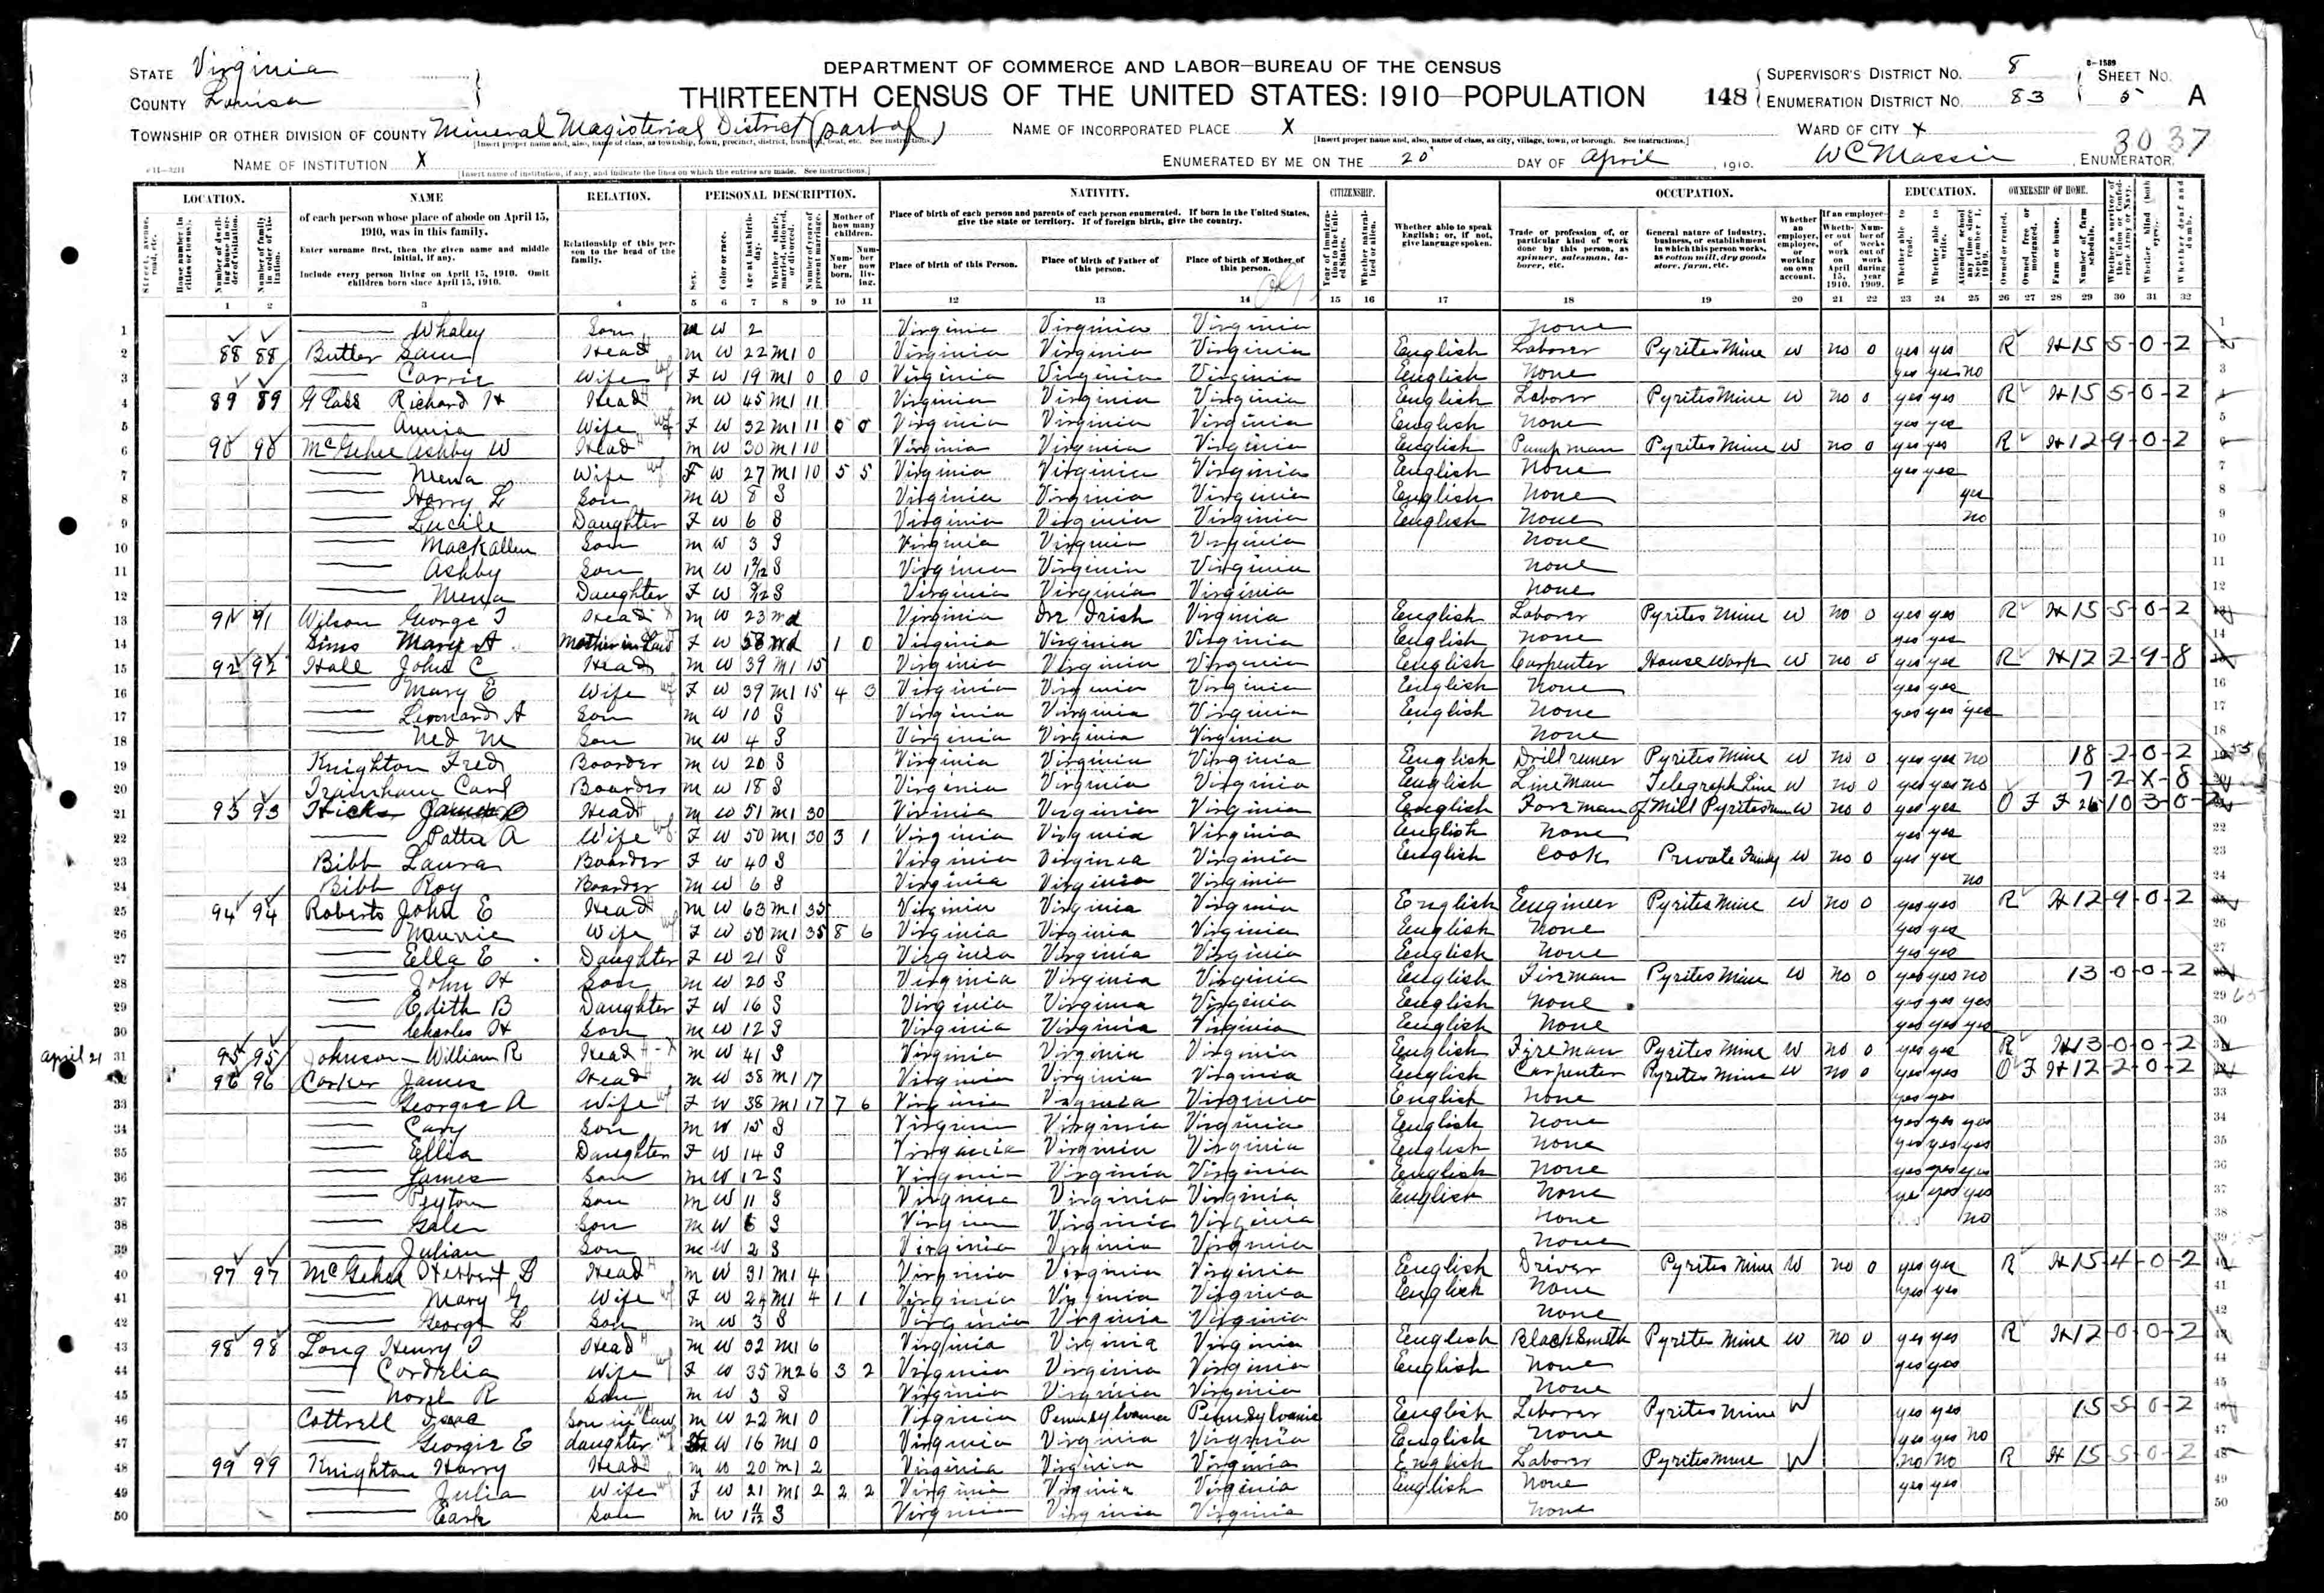 DEPARTMENT OF COMMERCE AND LABOR—BUREAU OF THE CENSUS
THIRTEENTH CENSUS OF THE UNITED STATES: 1910—POPULATION
STATE Virginia
COUNTY Louisa
TOWNSHIP OR OTHER DIVISION OF COUNTY Mineral Magisterial District (part of)
NAME OF INSTITUTION X
NAME OF INCORPORATED PLACE X
ENUMERATED BY ME ON THE 20 DAY OF April, 1910.
148
SUPERVISOR'S DISTRICT NO. 8
ENUMERATION DISTRICT NO. 83
8-1589
SHEET NO. 5 A
WARD OF CITY X
3037
WC Massie, ENUMERATOR.
LOCATION. NAME RELATION. PERSONAL DESCRIPTION. NATIVITY. CITIZENSHIP. OCCUPATION. EDUCATION. OWNERSHIP OF HOME.
of each person whose place of abode on April 15, 1910, was in this family.
Enter surname first, then the given name and middle initial, if any.
Include every person living on April 15, 1910. Omit children born since April 15, 1910.
Relationship of this person to the head of the family.
Place of birth of each person and parents of each person enumerated. If born in the United States, give the state or territory. If of foreign birth, give the country.
Place of birth of this Person. Place of birth of Father of this person. Place of birth of Mother of this person.
Whether able to speak English; or, if not, give language spoken.
Trade or profession of, or particular kind of work done by this person, as spinner, salesman, laborer, etc.
General nature of industry, business, or establishment in which this person works, as cotton mill, dry goods store, farm, etc.
1 2 3 4 5 6 7 8 9 10 11 12 13 14 15 16 17 18 19 20 21 22 23 24 25 26 27 28 29 30 31 32
1 — Whaley Son M W 2 Virginia Virginia Virginia None
2 88 88 Butler Sam Head M W 22 M1 0 Virginia Virginia Virginia English Laborer Pyrites Mine W no 0 yes yes R H 15-5-0-2
3 — Carrie Wife F W 19 M1 0 0 0 Virginia Virginia Virginia English None yes yes no
4 89 89 Glass Richard H Head M W 45 M1 11 Virginia Virginia Virginia English Laborer Pyrites Mine W no 0 yes yes R H 15-5-0-2
5 — Annie Wife F W 32 M1 11 0 0 Virginia Virginia Virginia English None yes yes
6 90 90 McGehee Ashby W Head M W 30 M1 10 Virginia Virginia Virginia English Pump man Pyrites Mine W no 0 yes yes R H 12-9-0-2
7 — Mena Wife F W 27 M1 10 5 5 Virginia Virginia Virginia English None yes yes
8 — Harry L Son M W 8 S Virginia Virginia Virginia English None yes
9 — Lucile Daughter F W 6 S Virginia Virginia Virginia English None no
10 — Mackallen Son M W 3 S Virginia Virginia Virginia None
11 — Ashby Son M W S Virginia Virginia Virginia None
12 — Mena Daughter F W S Virginia Virginia Virginia None
13 91 91 Wilson George T Head M W 23 Wd Virginia Ire Irish Virginia English Laborer Pyrites Mine W no 0 yes yes R H 15-5-0-2
14 Sims Mary A Mother in Law F W 58 Wd 1 0 Virginia Virginia Virginia English None yes yes
15 92 92 Hall John C Head M W 39 M1 15 Virginia Virginia Virginia English Carpenter House Work W no 0 yes yes R H 12-2-9-8
16 — Mary E Wife F W 39 M1 15 4 3 Virginia Virginia Virginia English None yes yes
17 — Leonard A Son M W 10 S Virginia Virginia Virginia English None yes yes yes
18 — Ned M Son M W 4 S Virginia Virginia Virginia None
19 Knighton Fred Boarder M W 20 S Virginia Virginia Virginia English Drill runer Pyrites Mine W no 0 yes yes no 18-2-0-2
20 Trainham Carl Boarder M W 18 S Virginia Virginia Virginia English Line Man Telegraph Line W no 0 yes yes no 7-2-X-8
21 93 93 Hicks James Head M W 51 M1 30 Virginia Virginia Virginia English Foreman of Mill Pyrites Mine W no 0 yes yes O F F 26 10-3-0-2
22 — Pattie A Wife F W 50 M1 30 3 1 Virginia Virginia Virginia English None yes yes
23 Bibb Laura Boarder F W 40 S Virginia Virginia Virginia English Cook Private Family W no 0 yes yes
24 Bibb Roy Boarder M W 6 S Virginia Virginia Virginia no
25 94 94 Roberts John E Head M W 63 M1 35 Virginia Virginia Virginia English Engineer Pyrites Mine W no 0 yes yes R H 12-9-0-2
26 — Nannie Wife F W 50 M1 35 8 6 Virginia Virginia Virginia English None yes yes
27 — Ella E Daughter F W 21 S Virginia Virginia Virginia English None yes yes
28 — John H Son M W 20 S Virginia Virginia Virginia English Fireman Pyrites Mine W no 0 yes yes no 13-0-0-2
29 — Edith B Daughter F W 16 S Virginia Virginia Virginia English None yes yes yes
30 — Charles H Son M W 12 S Virginia Virginia Virginia English None yes yes yes
April 21 31 95 95 Johnson William R Head M W 41 S Virginia Virginia Virginia English Fireman Pyrites Mine W no 0 yes yes R H 13-0-0-2
32 96 96 Corker James Head M W 38 M1 17 Virginia Virginia Virginia English Carpenter Pyrites Mine W no 0 yes yes O F H 12-2-0-2
33 — Georgie A Wife F W 38 M1 17 7 6 Virginia Virginia Virginia English None yes yes
34 — Cary Son M W 15 S Virginia Virginia Virginia English None yes yes yes
35 — Ellia Daughter F W 14 S Virginia Virginia Virginia English None yes yes yes
36 — James Son M W 12 S Virginia Virginia Virginia English None yes yes yes
37 — Peyton Son M W 11 S Virginia Virginia Virginia English None yes yes yes
38 — Galen Son M W 6 S Virginia Virginia Virginia None no
39 — Julian Son M W 2 S Virginia Virginia Virginia None
40 97 97 McGehee Herbert L Head M W 31 M1 4 Virginia Virginia Virginia English Driver Pyrites Mine W no 0 yes yes R H 15-4-0-2
41 — Mary G Wife F W 24 M1 4 1 1 Virginia Virginia Virginia English None yes yes
42 — George L Son M W 3 S Virginia Virginia Virginia None
43 98 98 Long Henry T Head M W 32 M1 6 Virginia Virginia Virginia English BlackSmith Pyrites Mine W no 0 yes yes R H 12-0-0-2
44 — Cordelia Wife F W 35 M2 6 3 2 Virginia Virginia Virginia English None yes yes
45 — Novel R Son M W 3 S Virginia Virginia Virginia None
46 Cottrell Isaac Son in Law M W 22 M1 0 Virginia Pennsylvania Pennsylvania English Laborer Pyrites Mine W yes yes 15-5-0-2
47 — Georgie E daughter W 16 M1 0 Virginia Virginia Virginia English None yes yes no
48 99 99 Knighton Harry Head M W 20 M1 2 Virginia Virginia Virginia English Laborer Pyrites Mine W no no R H 15-5-0-2
49 — Julia Wife F W 21 M1 2 2 2 Virginia Virginia Virginia English None yes yes
50 — Earl Son M W S Virginia Virginia Virginia None